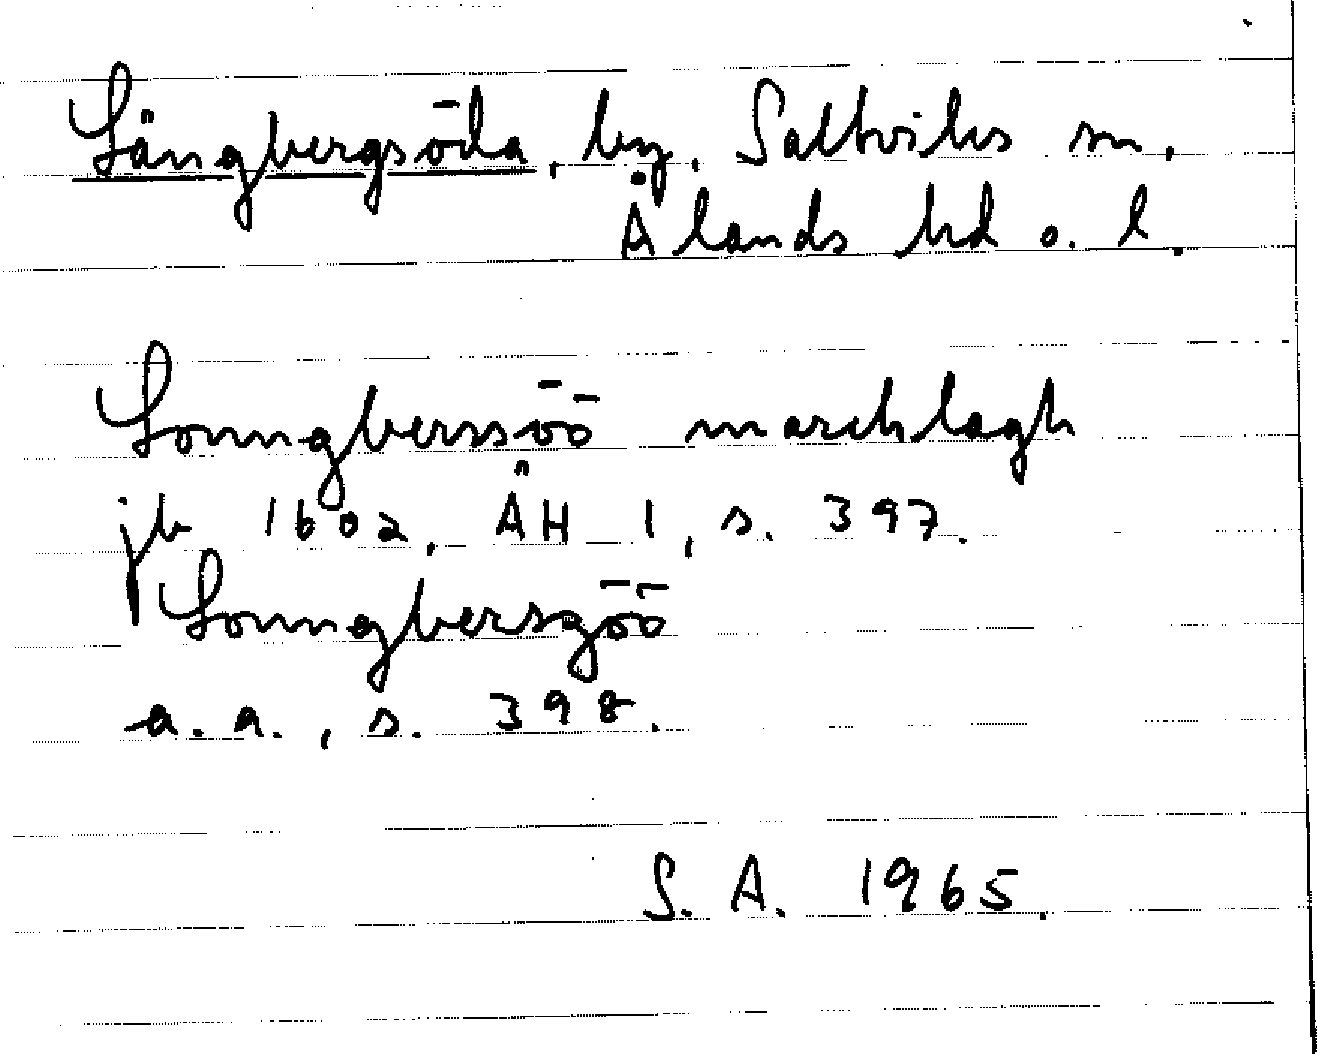 Långbergsöda, by, Saltviks sn,
Ålands hd o. l.
Lonngberssöö marchlagh
jb 1602, ÅH 1, s. 397.
Lonngbersgöö
a. a., s. 398.
S. A. 1965.